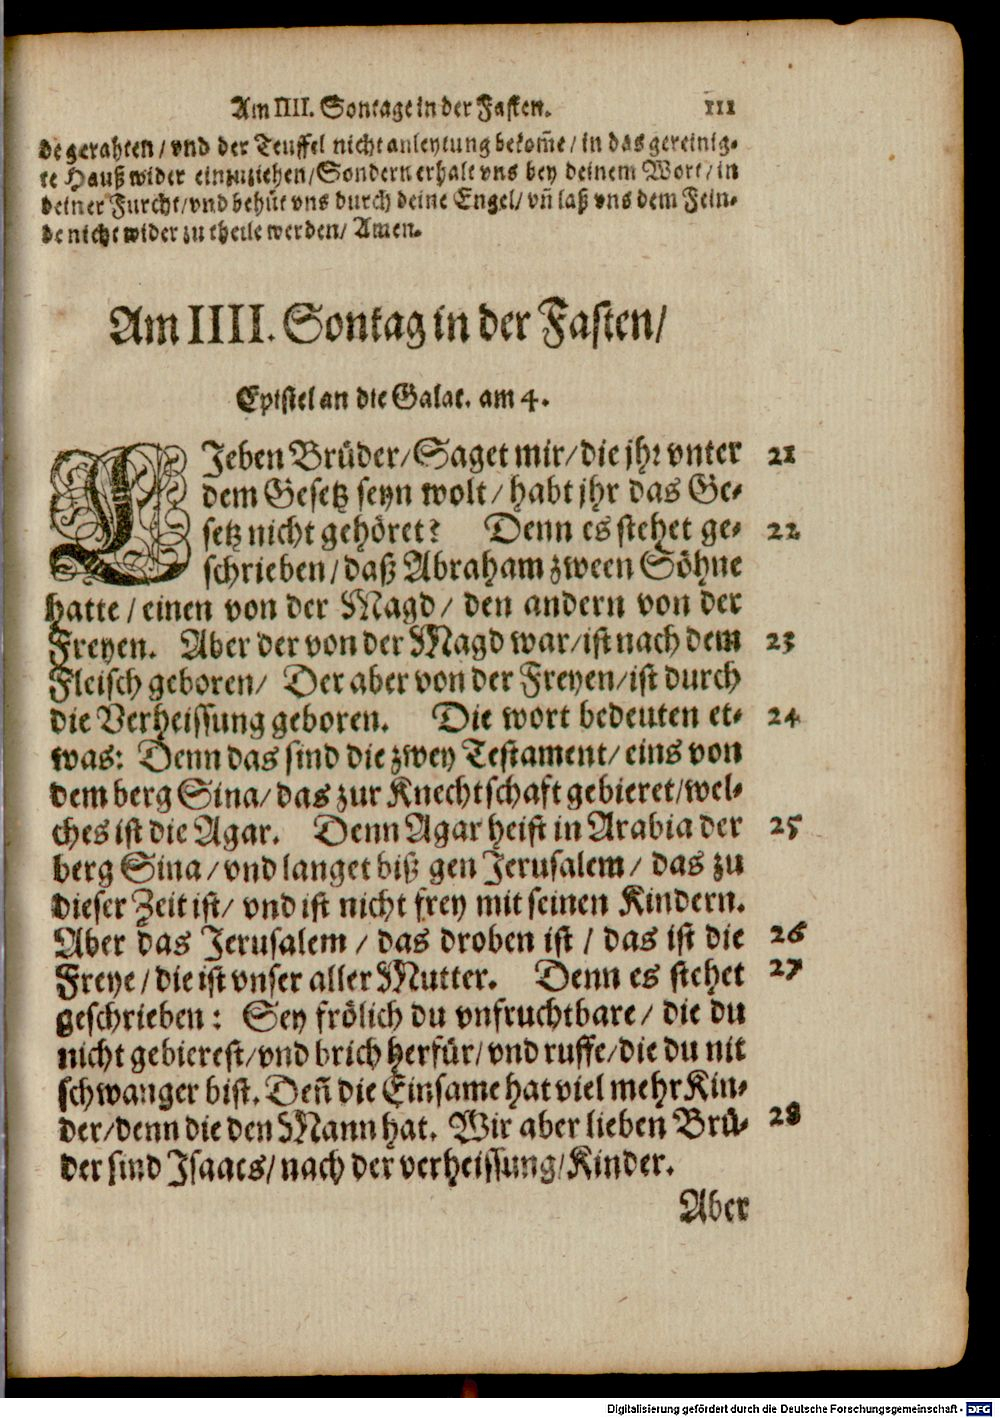 Am IIII. Sontage in der Fasten. 111
de gerahten / vnd der Teuffel nicht anleytung bekom̃e / in das gereinig-
te Hauß wider einzuziehen / Sondern erhalt vns bey deinem Wort / in
deiner Furcht / vnd behüt vns durch deine Engel / vñ laß vns dem Fein-
de nicht wider zu theile werden / Amen.
Am IIII. Sontag in der Fasten /
Epistel an die Galat. am 4.
LJeben Brüder / Saget mir / die jhr vnter 21
dem Gesetz seyn wolt / habt jhr das Ge-
setz nicht gehöret? Denn es stehet ge- 22
schrieben / daß Abraham zween Söhne
hatte / einen von der Magd / den andern von der
Freyen. Aber der von der Magd war / ist nach dem 23
Fleisch geboren / Der aber von der Freyen / ist durch
die Verheissung geboren. Die wort bedeuten et- 24
was: Denn das sind die zwey Testament / eins von
dem berg Sina / das zur Knechtschaft gebieret / wel-
ches ist die Agar. Denn Agar heist in Arabia der 25
berg Sina / vnd langet biß gen Jerusalem / das zu
dieser Zeit ist / vnd ist nicht frey mit seinen Kindern.
Aber das Jerusalem / das droben ist / das ist die 26
Freye / die ist vnser aller Mutter. Denn es stehet 27
geschrieben: Sey frölich du vnfruchtbare / die du
nicht gebierest / vnd brich herfür / vnd ruffe / die du nit
schwanger bist. Deñ die Einsame hat viel mehr Kin-
der / denn die den Mann hat. Wir aber lieben Brü- 28
der sind Isaacs / nach der verheissung / Kinder.
Aber
Digitalisierung gefördert durch die Deutsche Forschungsgemeinschaft - DFG